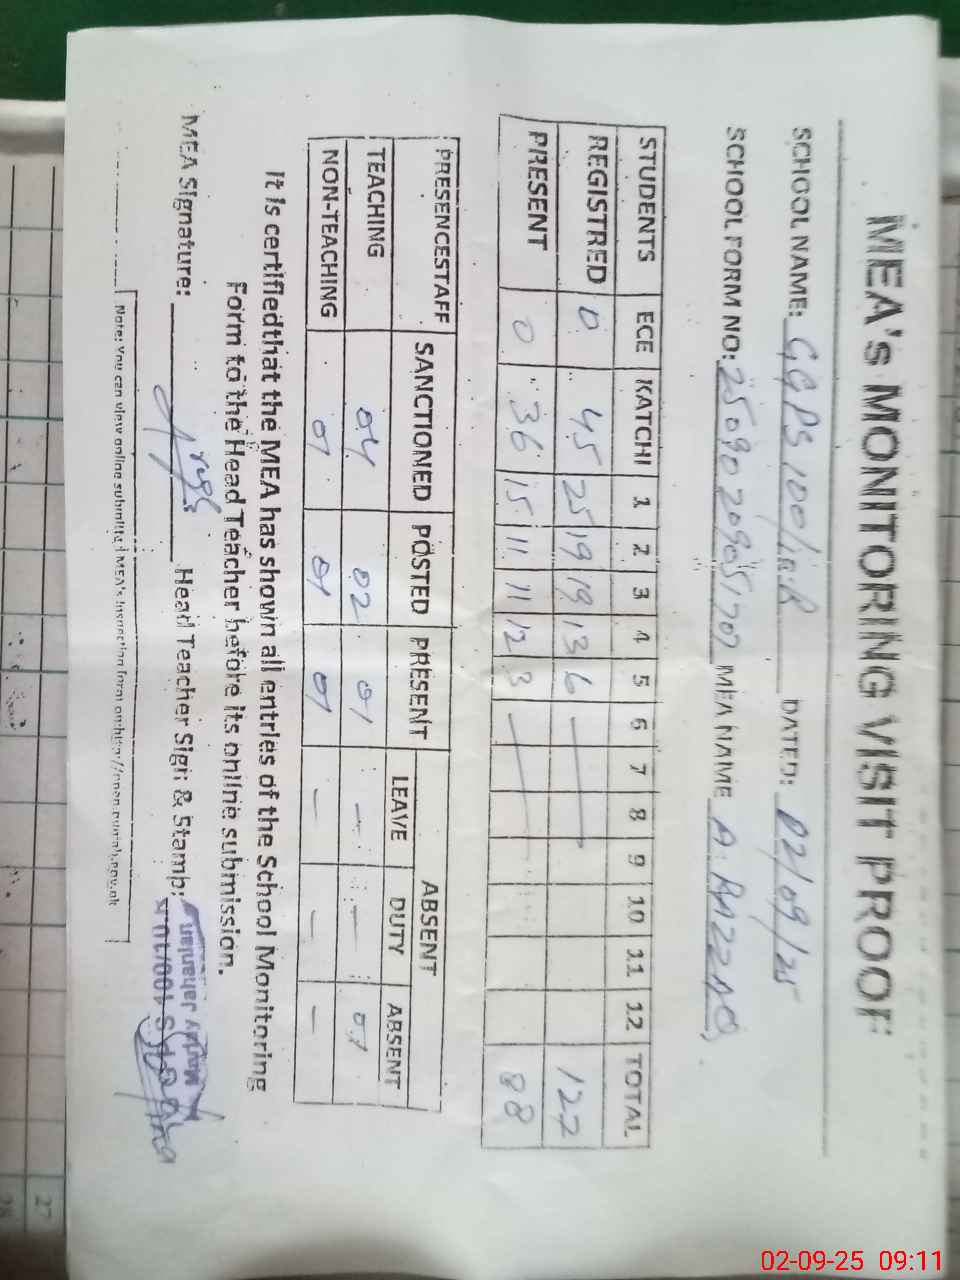 MEA's MONITORING VISIT PROOF
SCHOOL NAME: GGPS 100/10R DATED: 02/09/25
SCHOOL FORM NO: MEA NAME A. RAZZAQ
STUDENTS ECE KATCHI 1 2 3 4 5 6 7 8 9 10 11 12 TOTAL
REGISTRED 0 45 25 19 19 13 6 127
PRESENT 0 36 15 11 11 12 3 88
PRESENCESTAFF SANCTIONED POSTED PRESENT ABSENT
LEAVE DUTY ABSENT
TEACHING 04 02 01 — — 01
NON-TEACHING 01 01 01 — — —
It is certifiedthat the MEA has shown all entries of the School Monitoring
Form to the Head Teacher before its online submission.
MEA Signature: Head Teacher Sign & Stamp:
GGPS 100/10.R
Markaz Jahanian
Note: You can view online submitted MEA's Inspection form on
27
28
02-09-25 09:11